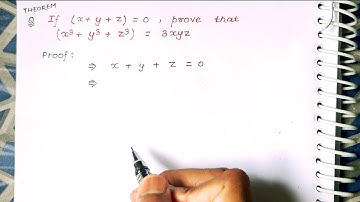 THEOREM
Q If (x + y + z) = 0 , prove that
(x³ + y³ + z³) = 3xyz
Proof :
⇒ x + y + z = 0
⇒